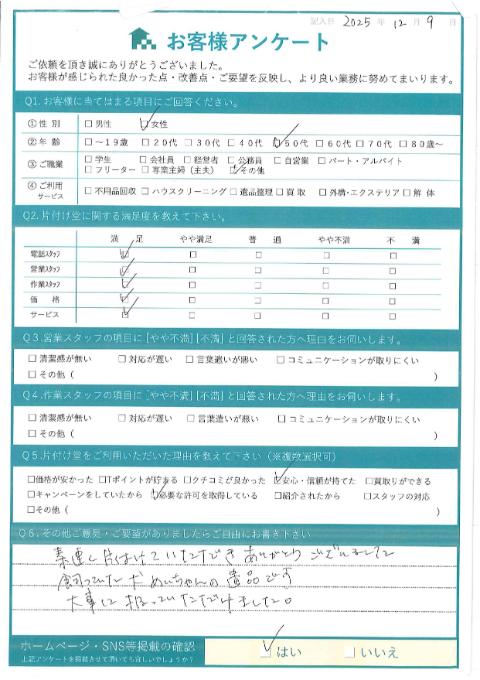 記入日 2025 年 12 月 9 日
お客様アンケート
ご依頼を頂き誠にありがとうございました。
お客様が感じられた良かった点・改善点・ご要望を反映し、より良い業務に努めてまいります。
Q1. お客様に当てはまる項目にご回答ください。
①性 別 □男性 ☑女性
②年 齢 □〜19歳 □20代 □30代 □40代 ☑50代 □60代 □70代 □80歳〜
③ご職業 □学生 □会社員 □経営者 □公務員 □自営業 □パート・アルバイト
□フリーター □専業主婦(主夫) ☑その他
④ご利用サービス □不用品回収 □ハウスクリーニング □遺品整理 □買取 □外構・エクステリア □解体
Q2. 片付け堂に関する満足度を教えて下さい。
満 足 やや満足 普 通 やや不満 不 満
電話スタッフ ☑ □ □ □ □
営業スタッフ ☑ □ □ □ □
作業スタッフ ☑ □ □ □ □
価 格 ☑ □ □ □ □
サービス ☑ □ □ □ □
Q3. 営業スタッフの項目に[やや不満][不満]と回答された方へ理由をお伺いします。
□清潔感が無い □対応が遅い □言葉遣いが悪い □コミュニケーションが取りにくい
□その他( )
Q4. 作業スタッフの項目に[やや不満][不満]と回答された方へ理由をお伺いします。
□清潔感が無い □対応が遅い □言葉遣いが悪い □コミュニケーションが取りにくい
□その他( )
Q5. 片付け堂をご利用いただいた理由を教えて下さい(※複数選択可)
□価格が安かった □Tポイントが貯まる □クチコミが良かった ☑安心・信頼が持てた □買取りができる
□キャンペーンをしていたから ☑必要な許可を取得している □紹介されたから □スタッフの対応
□その他( )
Q6. その他ご意見・ご要望がありましたらご自由にお書き下さい
素速く片付けていただきありがとうございました
飼っていた犬めいちゃんの遺品です
大事に扱っていただけました。
ホームページ・SNS等掲載の確認
上記アンケートを掲載させて頂いても宜しいでしょうか?
☑はい □いいえ